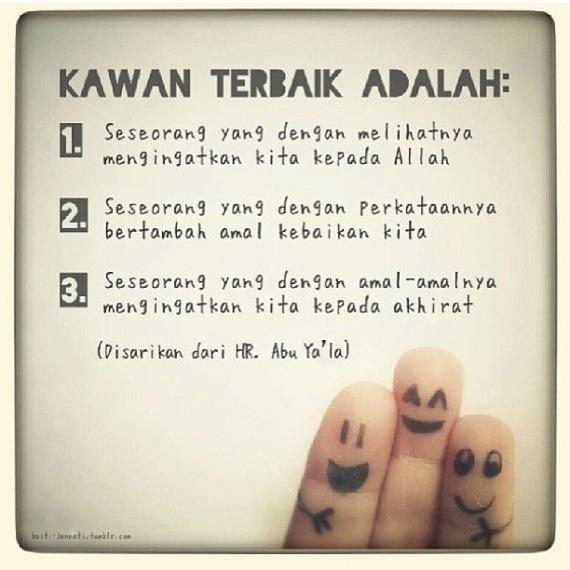 KAWAN TERBAIK ADALAH:
1. Seseorang yang dengan melihatnya
mengingatkan kita kepada Allah
2. Seseorang yang dengan perkataannya
bertambah amal kebaikan kita
3. Seseorang yang dengan amal-amalnya
mengingatkan kita kepada akhirat
(Disarikan dari HR. Abu Ya'la)